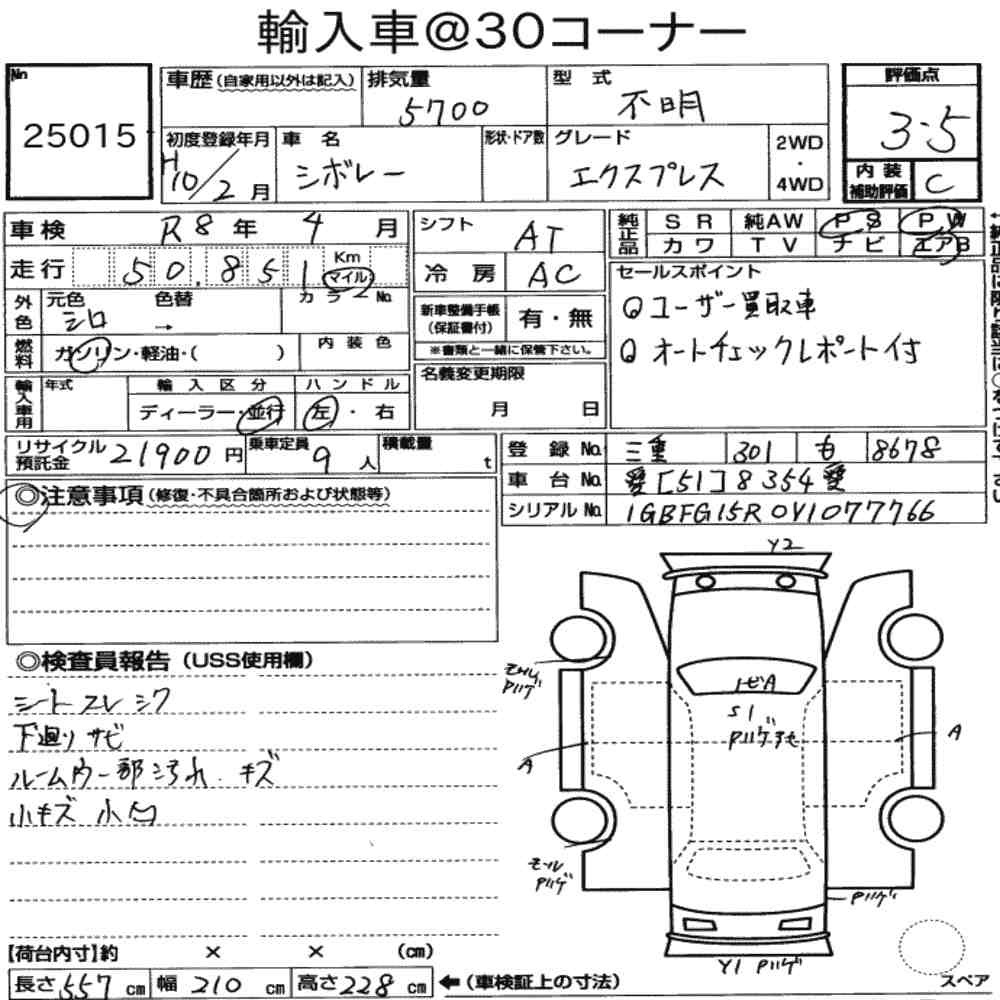 輸入車@30コーナー
No
25015
車歴(自家用以外は記入)
排気量
5700
型式
不明
評価点
3.5
初度登録年月
H10/2月
車名
シボレー
形状・ドア数
グレード
エクスプレス
2WD
・
4WD
内装
補助評価
C
車検 R8年 4月
シフト AT
純正品
SR 純AW PS PW
カワ TV ナビ エアB
走行 50,851 Km
マイル
冷房 AC
セールスポイント
◎ユーザー買取車
◎オートチェックレポート付
外色
元色 色替 カラーNo.
シロ →
新車整備手帳
(保証書付)
有・無
※書類と一緒に保管下さい。
燃料
ガソリン・軽油・( )
内装色
名義変更期限
月 日
輸入車用
年式
輸入区分
ハンドル
ディーラー・並行
左・右
リサイクル
預託金
21900円
乗車定員
9人
積載量
t
登録No. 三重 301 も 8678
車台No. 愛[51]8354愛
シリアルNo. 1GBFG15R0V1077766
◎注意事項(修復・不具合箇所および状態等)
◎検査員報告(USS使用欄)
シートスレ シワ
下廻りサビ
ルーム内一部汚れ キズ
小キズ 小凹
Y2
モール
Pハゲ
トビA
S1
Pハゲ
A
A
モール
Pハゲ
Pハゲ
Y1 Pハゲ
スペア
【荷台内寸】約 × × (cm)
長さ557cm 幅210cm 高さ228cm ←(車検証上の寸法)